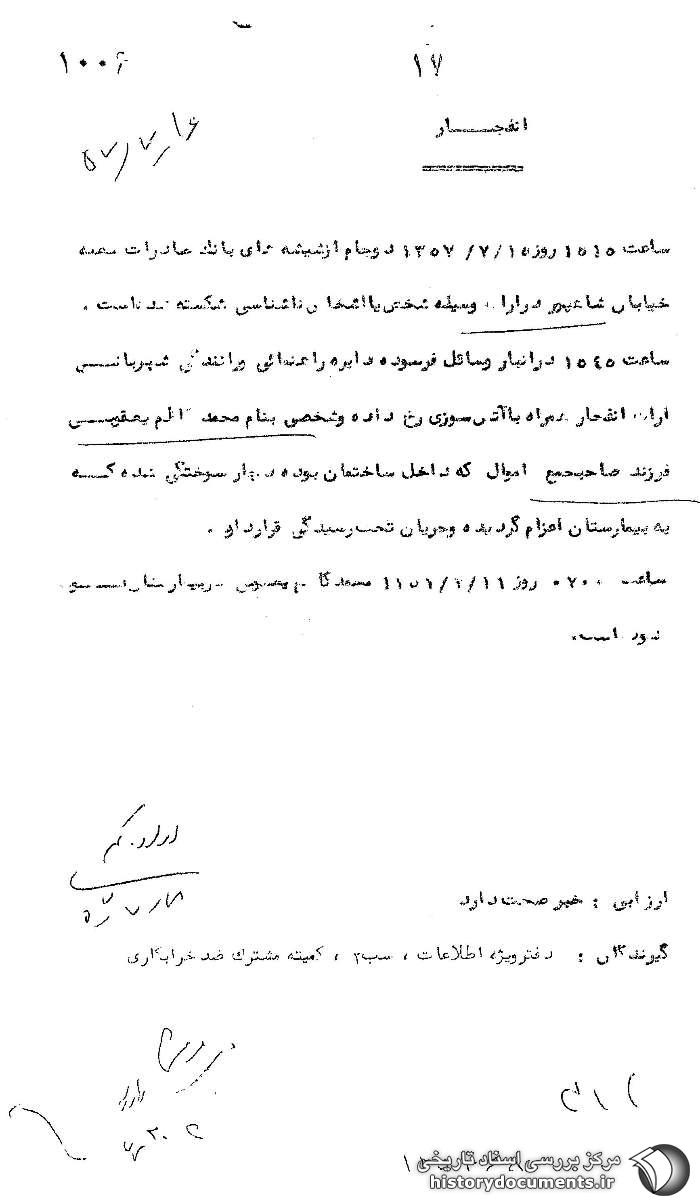 ۱۷
۱۰۰۶
انفجار
۵۷/۷/۱۶
ساعت ۱۵۱۵ روز ۱۳۵۷/۷/۱۵ دوجام ازشیشه های بانك صادرات شعبه
خیابان شاعپور دراراك وسیله شخص یااشخاص ناشناسی شکسته شده است .
ساعت ۱۵۴۵ درانبار وسائل فرسوده دایره راهنمائی ورانندگی شهربانی
اراك انفجار همراه باآتش سوزی رخ داده وشخصی بنام محمد کاظم یعقوبی
فرزند صاحبجمع اموال که داخل ساختمان بوده دچار سوختگی شده که
به بیمارستان اعزام گردیده وجریان تحت رسیدگی قراردارد .
ساعت ۰۷۰۰ روز
است.
ارزابی : خبر صحت دارد
گیرندگان : دفترویژه اطلاعات ، سب۲ ، کمیته مشترك ضد خرابکاری
۳۱۲
مرکز بررسی اسناد تاریخی
historydocuments.ir